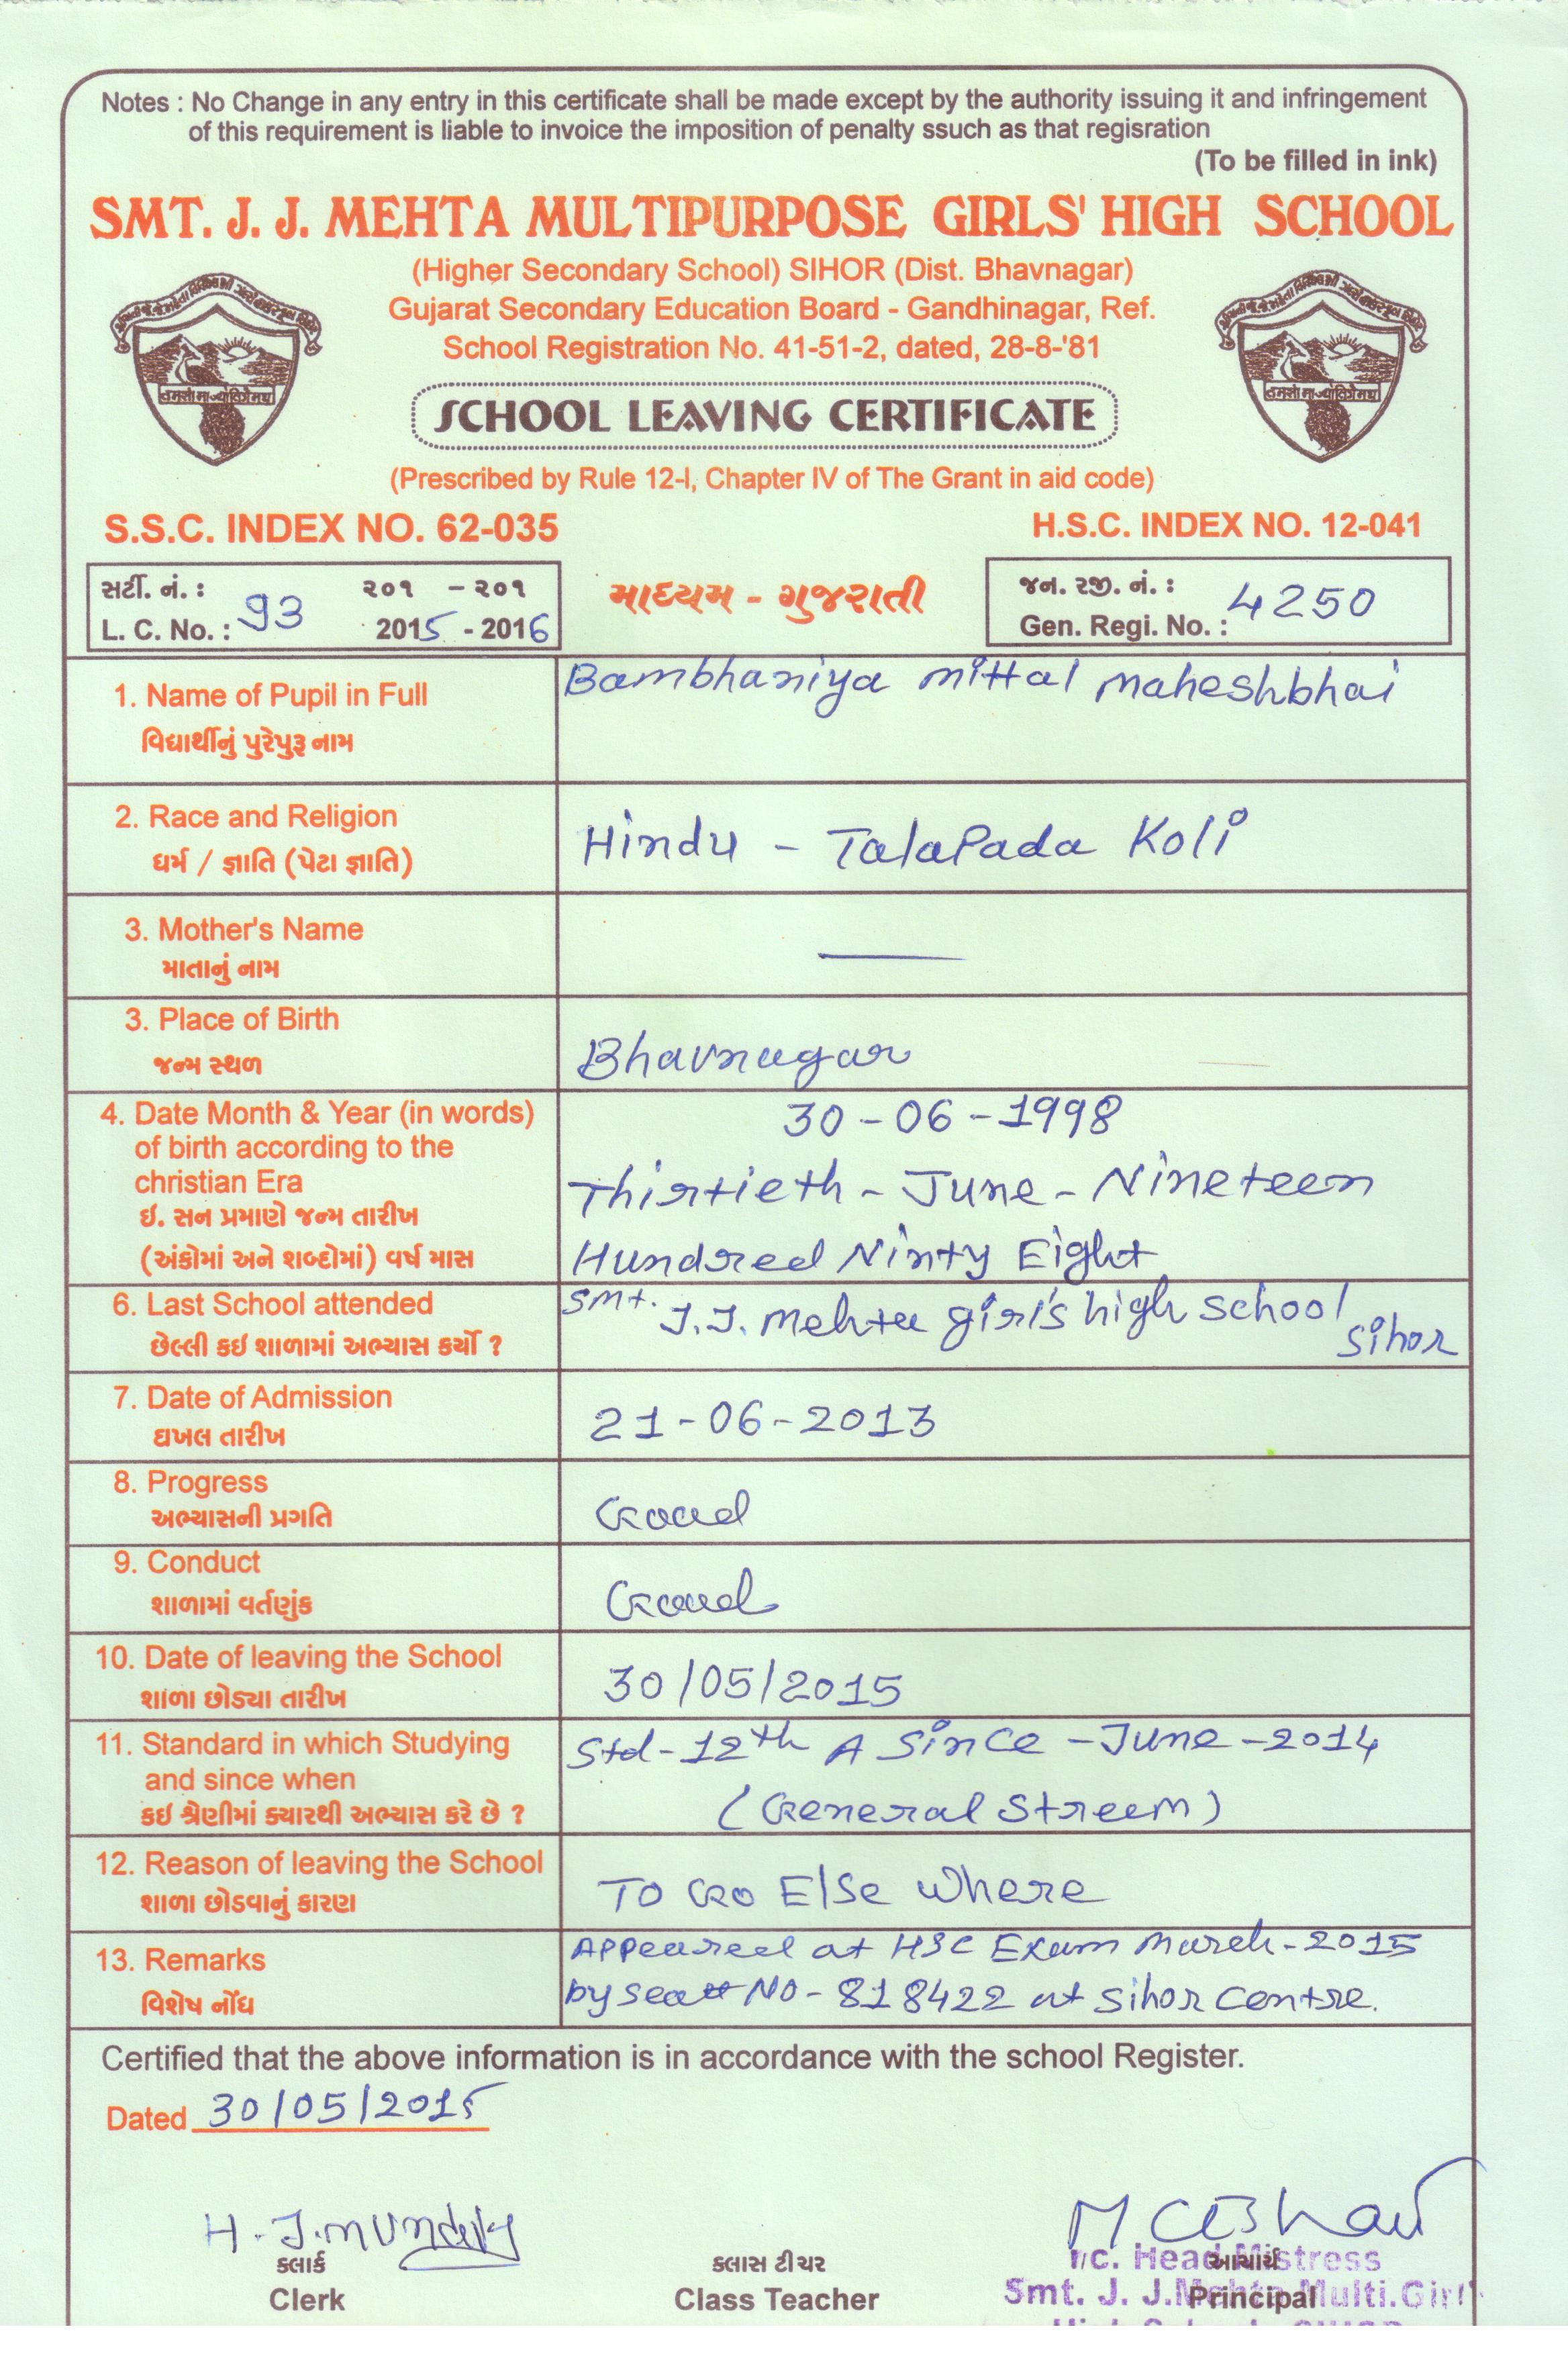 Notes : No Change in any entry in this certificate shall be made except by the authority issuing it and infringement
of this requirement is liable to invoice the imposition of penalty ssuch as that regisration
(To be filled in ink)
SMT. J. J. MEHTA MULTIPURPOSE GIRLS' HIGH SCHOOL
(Higher Secondary School) SIHOR (Dist. Bhavnagar)
Gujarat Secondary Education Board - Gandhinagar, Ref.
School Registration No. 41-51-2, dated, 28-8-'81
तमसो मा ज्योतिर्गमय
तमसो मा ज्योतिर्गमय
SCHOOL LEAVING CERTIFICATE
(Prescribed by Rule 12-I, Chapter IV of The Grant in aid code)
S.S.C. INDEX NO. 62-035
H.S.C. INDEX NO. 12-041
સર્ટી. નં. : ૨૦૧ – ૨૦૧
L. C. No. : 93 2015 - 2016
માધ્યમ - ગુજરાતી
જન. રજી. નં. :
Gen. Regi. No. : 4250
1. Name of Pupil in Full
વિદ્યાર્થીનું પુરેપુરૂ નામ
Bambhaniya mittal maheshbhai
2. Race and Religion
ધર્મ / જ્ઞાતિ (પેટા જ્ઞાતિ)
Hindu - TalaPada Koli
3. Mother's Name
માતાનું નામ
3. Place of Birth
જન્મ સ્થળ
Bhavnagar
4. Date Month & Year (in words)
of birth according to the
christian Era
ઇ. સન પ્રમાણે જન્મ તારીખ
(અંકોમાં અને શબ્દોમાં) વર્ષ માસ
30-06-1998
Thirtieth - June - Nineteen
Hundred Ninty Eight
6. Last School attended
છેલ્લી કઇ શાળામાં અભ્યાસ કર્યો ?
smt. J.J. Mehta girl's high school
Sihor
7. Date of Admission
દાખલ તારીખ
21-06-2013
8. Progress
અભ્યાસની પ્રગતિ
Good
9. Conduct
શાળામાં વર્તણુંક
Good
10. Date of leaving the School
શાળા છોડ્યા તારીખ
30/05/2015
11. Standard in which Studying
and since when
કઇ શ્રેણીમાં ક્યારથી અભ્યાસ કરે છે ?
Std-12th A Since - June - 2014
(General Streem)
12. Reason of leaving the School
શાળા છોડવાનું કારણ
To Go Else Where
13. Remarks
વિશેષ નોંધ
Appeared at HSC Exam March-2015
by seat No-818422 at Sihor Centre.
Certified that the above information is in accordance with the school Register.
Dated 30/05/2015
કલાર્ક
Clerk
કલાસ ટીચર
Class Teacher
I/c. Head Mistress
આચાર્ય
Smt. J. J. Mehta Multi. Girl's
Principal